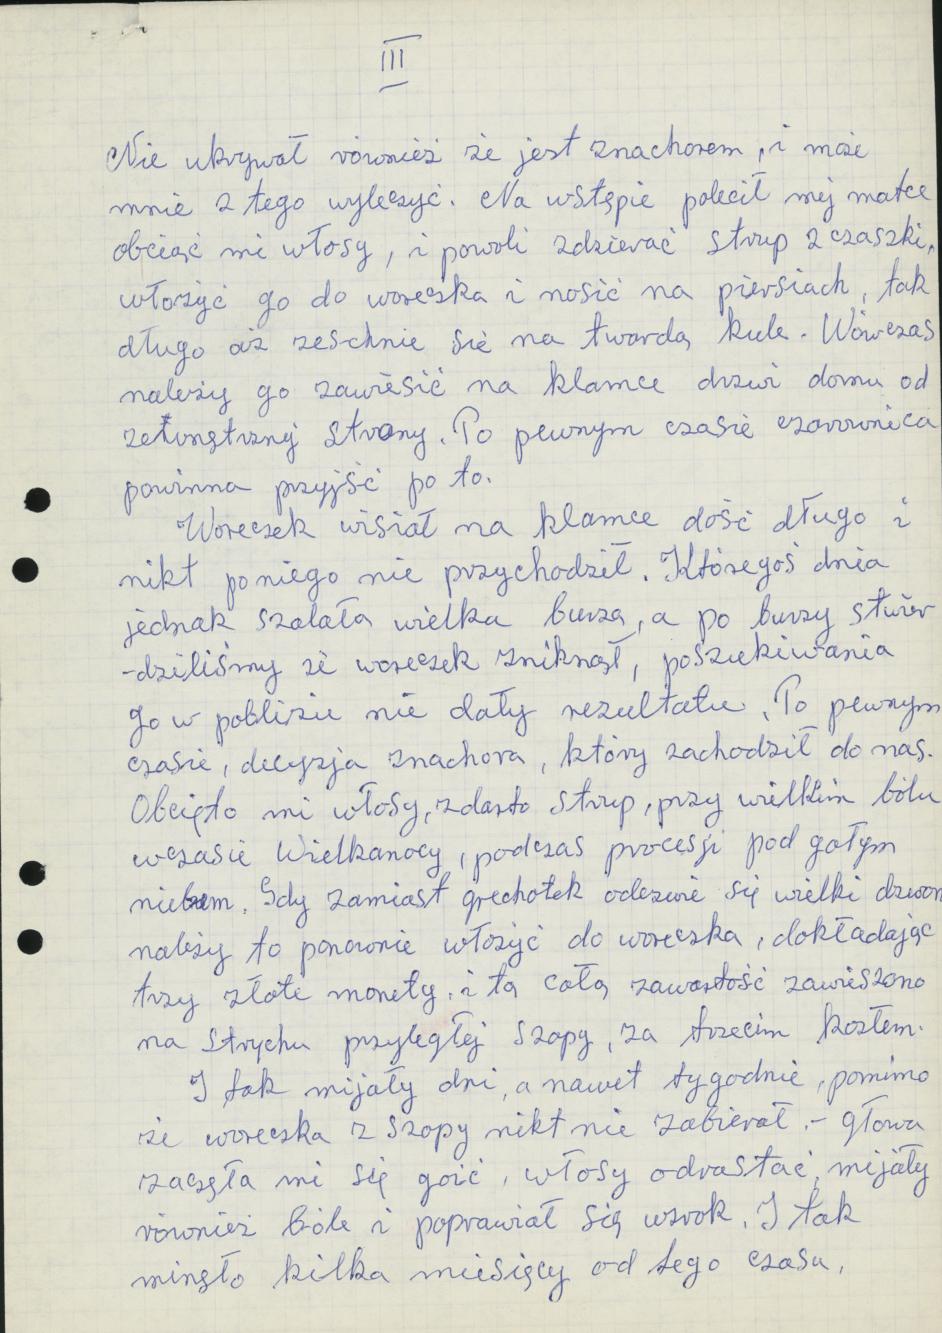 III
Nie ukrywał również że jest znachorem, i może
mnie z tego wyleczyć. Na wstępie polecił mej matce
obciąć mi włosy, i powoli zdzierać strup z czaszki,
włożyć go do woreczka i nosić na piersiach, tak
długo aż zeschnie się na twardą kule. Wówczas
należy go zawiesić na klamce drzwi domu od
zewnętrznej strony. Po pewnym czasie czarownica
powinna przyjść po to.
Woreczek wisiał na klamce dość długo i
nikt po niego nie przychodził. Któregoś dnia
jednak szalała wielka burza, a po burzy stwier
-dziliśmy że woreczek zniknął, poszukiwania
go w pobliżu nie dały rezultatu. Po pewnym
czasie, decyzja znachora, który zachodził do nas.
Obcięto mi włosy, zdarto strup, przy wielkim bólu
wczasie Wielkanocy, podczas procesji pod gołym
niebem. Gdy zamiast grechotek odezwie się wielki dzwon
należy to ponownie włożyć do woreczka, dokładając
trzy złote monety, i tą całą zawartość zawieszono
na strychu przyległej szopy, za trzecim kozłem.
I tak mijały dni, a nawet tygodnie, pomimo
że woreczka z szopy nikt nie zabierał. - głowa
zaczęła mi się goić, włosy odrastać, mijały
również bóle i poprawiał się wzrok. I tak
minęło kilka miesięcy od tego czasu.